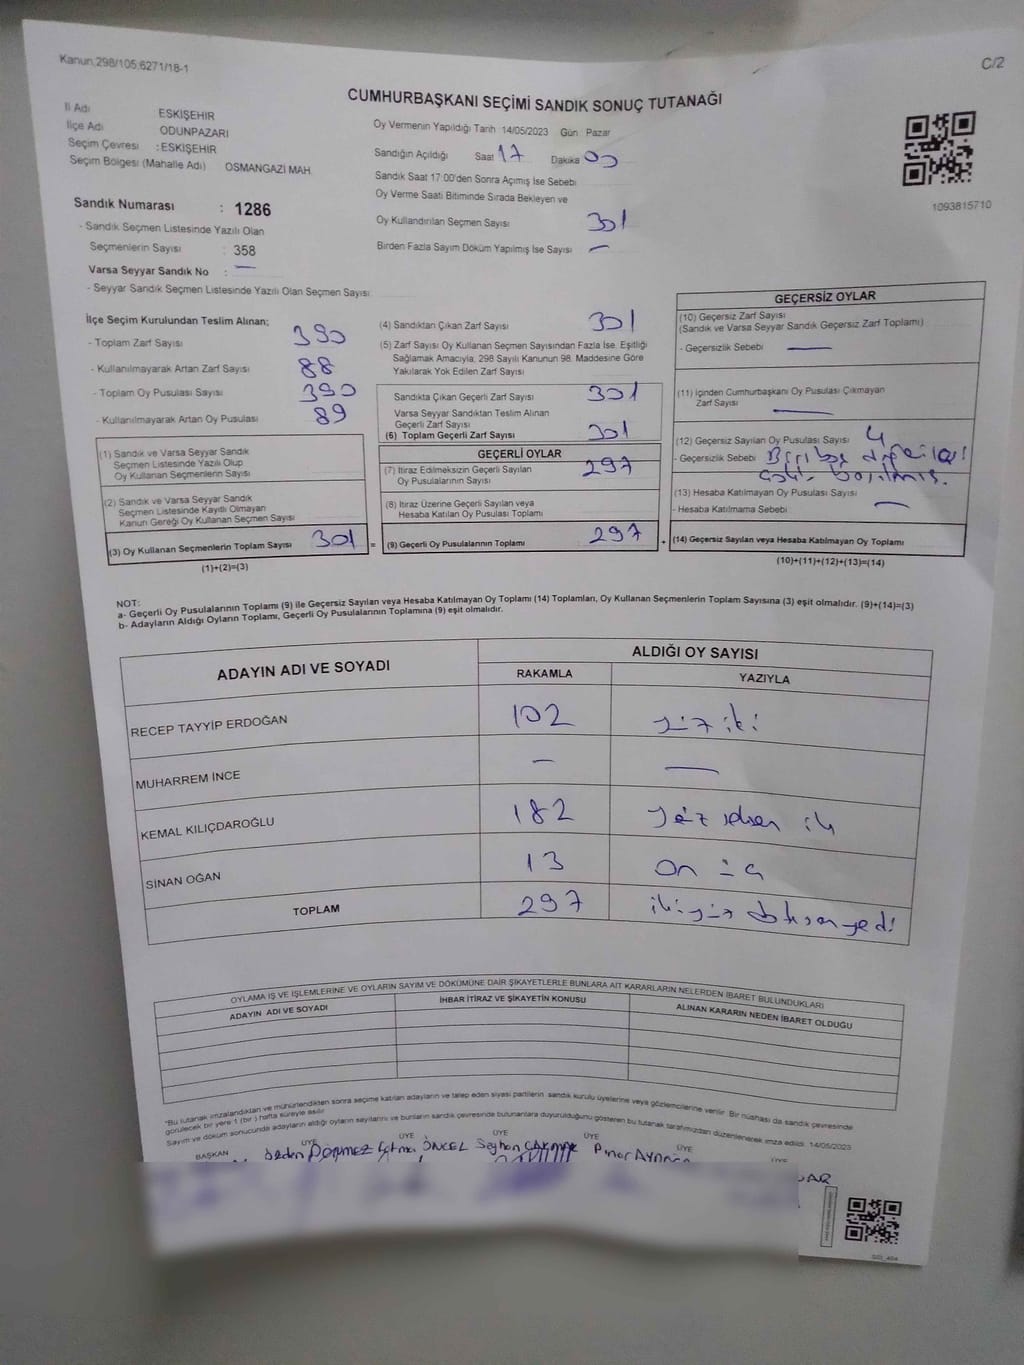 Kanun.298/105.6271/18-1
C/2
CUMHURBAŞKANI SEÇİMİ SANDIK SONUÇ TUTANAĞI
İl Adı ESKİŞEHİR
İlçe Adı ODUNPAZARI
Seçim Çevresi : ESKİŞEHİR
Seçim Bölgesi (Mahalle Adı) OSMANGAZİ MAH
Sandık Numarası : 1286
- Sandık Seçmen Listesinde Yazılı Olan
Seçmenlerin Sayısı : 358
Varsa Seyyar Sandık No : —
- Seyyar Sandık Seçmen Listesinde Yazılı Olan Seçmen Sayısı
Oy Vermenin Yapıldığı Tarih 14/05/2023 Gün Pazar
Sandığın Açıldığı Saat 17 Dakika 00
Sandık Saat 17:00'den Sonra Açımış İse Sebebi
Oy Verme Saati Bitiminde Sırada Bekleyen ve
Oy Kullandırılan Seçmen Sayısı 301
Birden Fazla Sayım Döküm Yapılmış İse Sayısı —
1093815710
İlçe Seçim Kurulundan Teslim Alınan;
- Toplam Zarf Sayısı 390
- Kullanılmayarak Artan Zarf Sayısı 88
- Toplam Oy Pusulası Sayısı 390
- Kullanılmayarak Artan Oy Pusulası 89
(1) Sandık ve Varsa Seyyar Sandık
Seçmen Listesinde Yazılı Olup
Oy Kullanan Seçmenlerin Sayısı
(2) Sandık ve Varsa Seyyar Sandık
Seçmen Listesinde Kayıtlı Olmayan
Kanun Gereği Oy Kullanan Seçmen Sayısı
(3) Oy Kullanan Seçmenlerin Toplam Sayısı 301 =
(1)+(2)=(3)
(4) Sandıktan Çıkan Zarf Sayısı 301
(5) Zarf Sayısı Oy Kullanan Seçmen Sayısından Fazla İse, Eşitliği
Sağlamak Amacıyla, 298 Sayılı Kanunun 98. Maddesine Göre
Yakılarak Yok Edilen Zarf Sayısı
Sandıkta Çıkan Geçerli Zarf Sayısı 301
Varsa Seyyar Sandıktan Teslim Alınan
Geçerli Zarf Sayısı
(6) Toplam Geçerli Zarf Sayısı 301
GEÇERLİ OYLAR
(7) İtiraz Edilmeksizin Geçerli Sayılan
Oy Pusulalarının Sayısı 297
(8) İtiraz Üzerine Geçerli Sayılan veya
Hesaba Katılan Oy Pusulası Toplamı
(9) Geçerli Oy Pusulalarının Toplamı 297 +
GEÇERSİZ OYLAR
(10) Geçersiz Zarf Sayısı
(Sandık ve Varsa Seyyar Sandık Geçersiz Zarf Toplamı)
- Geçersizlik Sebebi —
(11) İçinden Cumhurbaşkanı Oy Pusulası Çıkmayan
Zarf Sayısı —
(12) Geçersiz Sayılan Oy Pusulası Sayısı 4
- Geçersizlik Sebebi Biri boş diğerleri
(13) Hesaba Katılmayan Oy Pusulası Sayısı
- Hesaba Katılmama Sebebi —
(14) Geçersiz Sayılan veya Hesaba Katılmayan Oy Toplamı
(10)+(11)+(12)+(13)=(14)
NOT:
a- Geçerli Oy Pusulalarının Toplamı (9) ile Geçersiz Sayılan veya Hesaba Katılmayan Oy Toplamı (14) Toplamları, Oy Kullanan Seçmenlerin Toplam Sayısına (3) eşit olmalıdır. (9)+(14)=(3)
b- Adayların Aldığı Oyların Toplamı, Geçerli Oy Pusulalarının Toplamına (9) eşit olmalıdır.
ADAYIN ADI VE SOYADI
ALDIĞI OY SAYISI
RAKAMLA YAZIYLA
RECEP TAYYİP ERDOĞAN 102 yüz iki
MUHARREM İNCE — —
KEMAL KILIÇDAROĞLU 182 yüz seksen iki
SİNAN OĞAN 13 on üç
TOPLAM 297 ikiyüz doksan yedi
OYLAMA İŞ VE İŞLEMLERİNE VE OYLARIN SAYIM VE DÖKÜMÜNE DAİR ŞİKAYETLERLE BUNLARA AİT KARARLARIN NELERDEN İBARET BULUNDUKLARI
ADAYIN ADI VE SOYADI İHBAR İTİRAZ VE ŞİKAYETİN KONUSU ALINAN KARARIN NEDEN İBARET OLDUĞU
*Bu tutanak imzalandıktan ve mühürlendikten sonra seçime katılan adayların ve talep eden siyasi partilerin sandık kurulu üyelerine veya gözlemcilerine verilir. Bir nüshası da sandık çevresinde
görülecek bir yere 1 (bir) hafta süreyle asılır
Sayım ve döküm sonucunda adayların aldığı oyların sayılarını ve bunların sandık çevresinde bulunanlara duyurulduğunu gösteren bu tutanak tarafımızdan düzenlenerek imza edildi. 14/05/2023
BAŞKAN ÜYE ÜYE ÜYE ÜYE ÜYE ÜYE
Özden DÖNMEZ Fatma ÖNCEL Seyhan ÇAKMAK Pınar